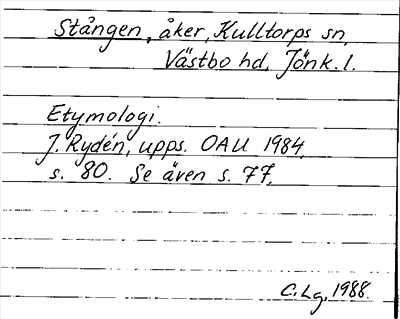 Stången, åker, Kulltorps sn,
Västbo hd, Jönk. l.
Etymologi.
J. Rydén, upps. OAU 1984,
s. 80. Se även s. 77.
C. Lg, 1988.